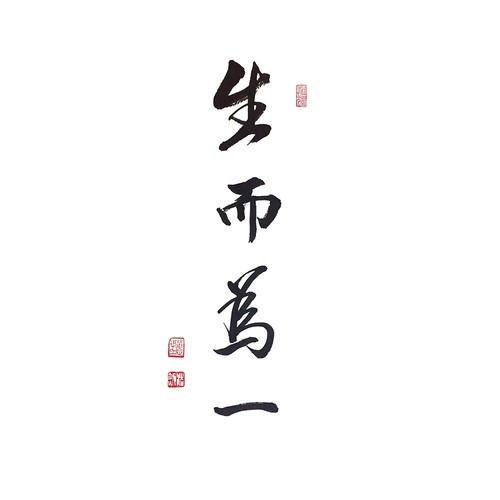 生而為一